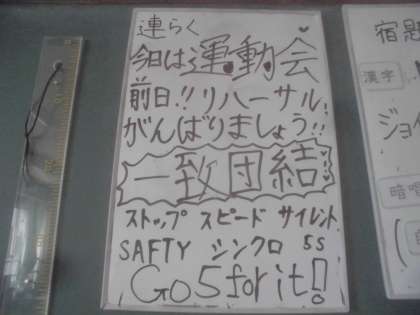 連らく
今日は運動会
前日!!リハーサル!
がんばりましょう!!
一致団結
ストップ スピード サイレント
SAFTY シンクロ 5S
Go 5 for it!!
宿題
漢字
ジョイ
暗唱